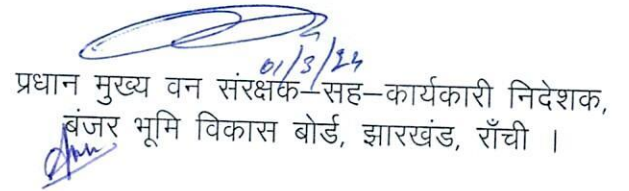 01/3/24
प्रधान मुख्य वन संरक्षक–सह–कार्यकारी निदेशक,
बंजर भूमि विकास बोर्ड, झारखंड, राँची ।